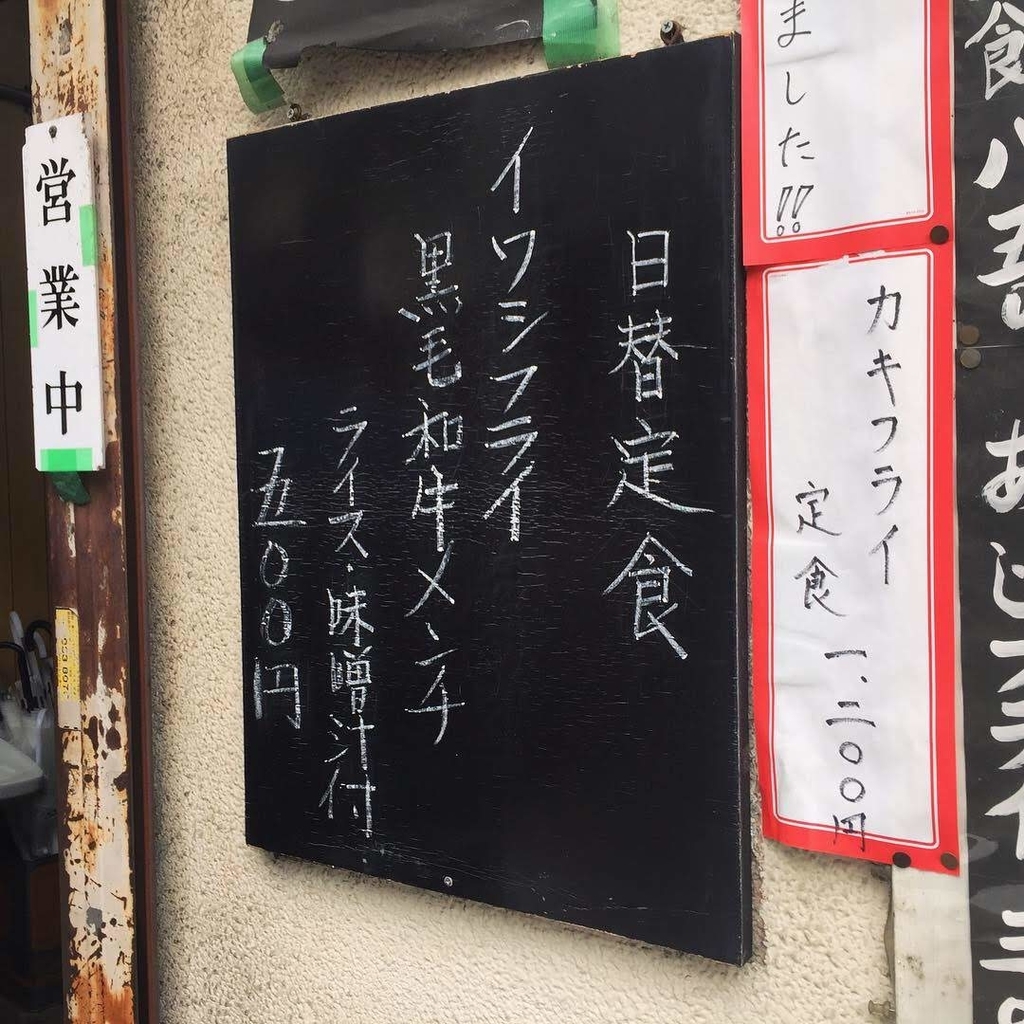 ました!!
カキフライ
定食 一、二〇〇円
日替定食
イワシフライ
黒毛和牛メンチ
ライス・味噌汁付.
五〇〇円
営業中